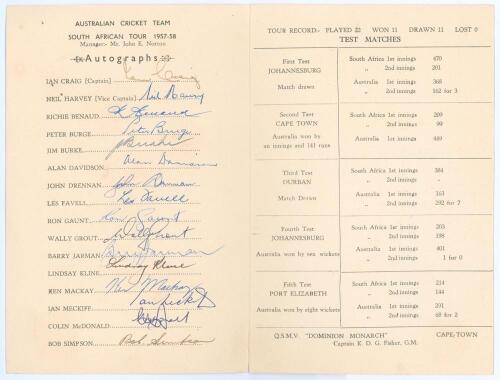 AUSTRALIAN CRICKET TEAM
SOUTH AFRICAN TOUR 1957-58
Manager:- Mr. John E. Norton
Autographs
IAN CRAIG [Captain] Ian Craig
NEIL HARVEY [Vice Captain] Neil Harvey
RICHIE BENAUD R Benaud
PETER BURGE Peter Burge
JIM BURKE J Burke
ALAN DAVIDSON Alan Davidson
JOHN DRENNAN John Drennan
LES FAVELL Les Favell
RON GAUNT Ron Gaunt
WALLY GROUT Wally Grout
BARRY JARMAN Barry Jarman
LINDSAY KLINE Lindsay Kline
KEN MACKAY Ken Mackay
IAN MECKIFF Ian Meckiff
COLIN McDONALD
BOB SIMPSON Bob Simpson
TOUR RECORD:- PLAYED 22 WON 11 DRAWN 11 LOST 0
TEST MATCHES
First Test South Africa 1st innings 470
JOHANNESBURG „ 2nd innings 201
Match drawn Australia 1st innings 368
„ 2nd innings 162 for 3
Second Test South Africa 1st innings 209
CAPE TOWN „ 2nd innings 99
Australia won by Australia 1st innings 449
an innings and 141 runs
Third Test South Africa 1st innings 384
DURBAN „ 2nd innings „
Match Drawn Australia 1st innings 163
„ 2nd innings 292 for 7
Fourth Test South Africa 1st innings 203
JOHANNESBURG „ 2nd innings 198
Australia won by ten wickets Australia 1st innings 401
„ 2nd innings 1 for 0
Fifth Test South Africa 1st innings 214
PORT ELIZABETH „ 2nd innings 144
Australia won by eight wickets Australia 1st innings 291
„ 2nd innings 68 for 2
Q.S.M.V. "DOMINION MONARCH" CAPE-TOWN
Captain K. D. G. Fisher, G.M.